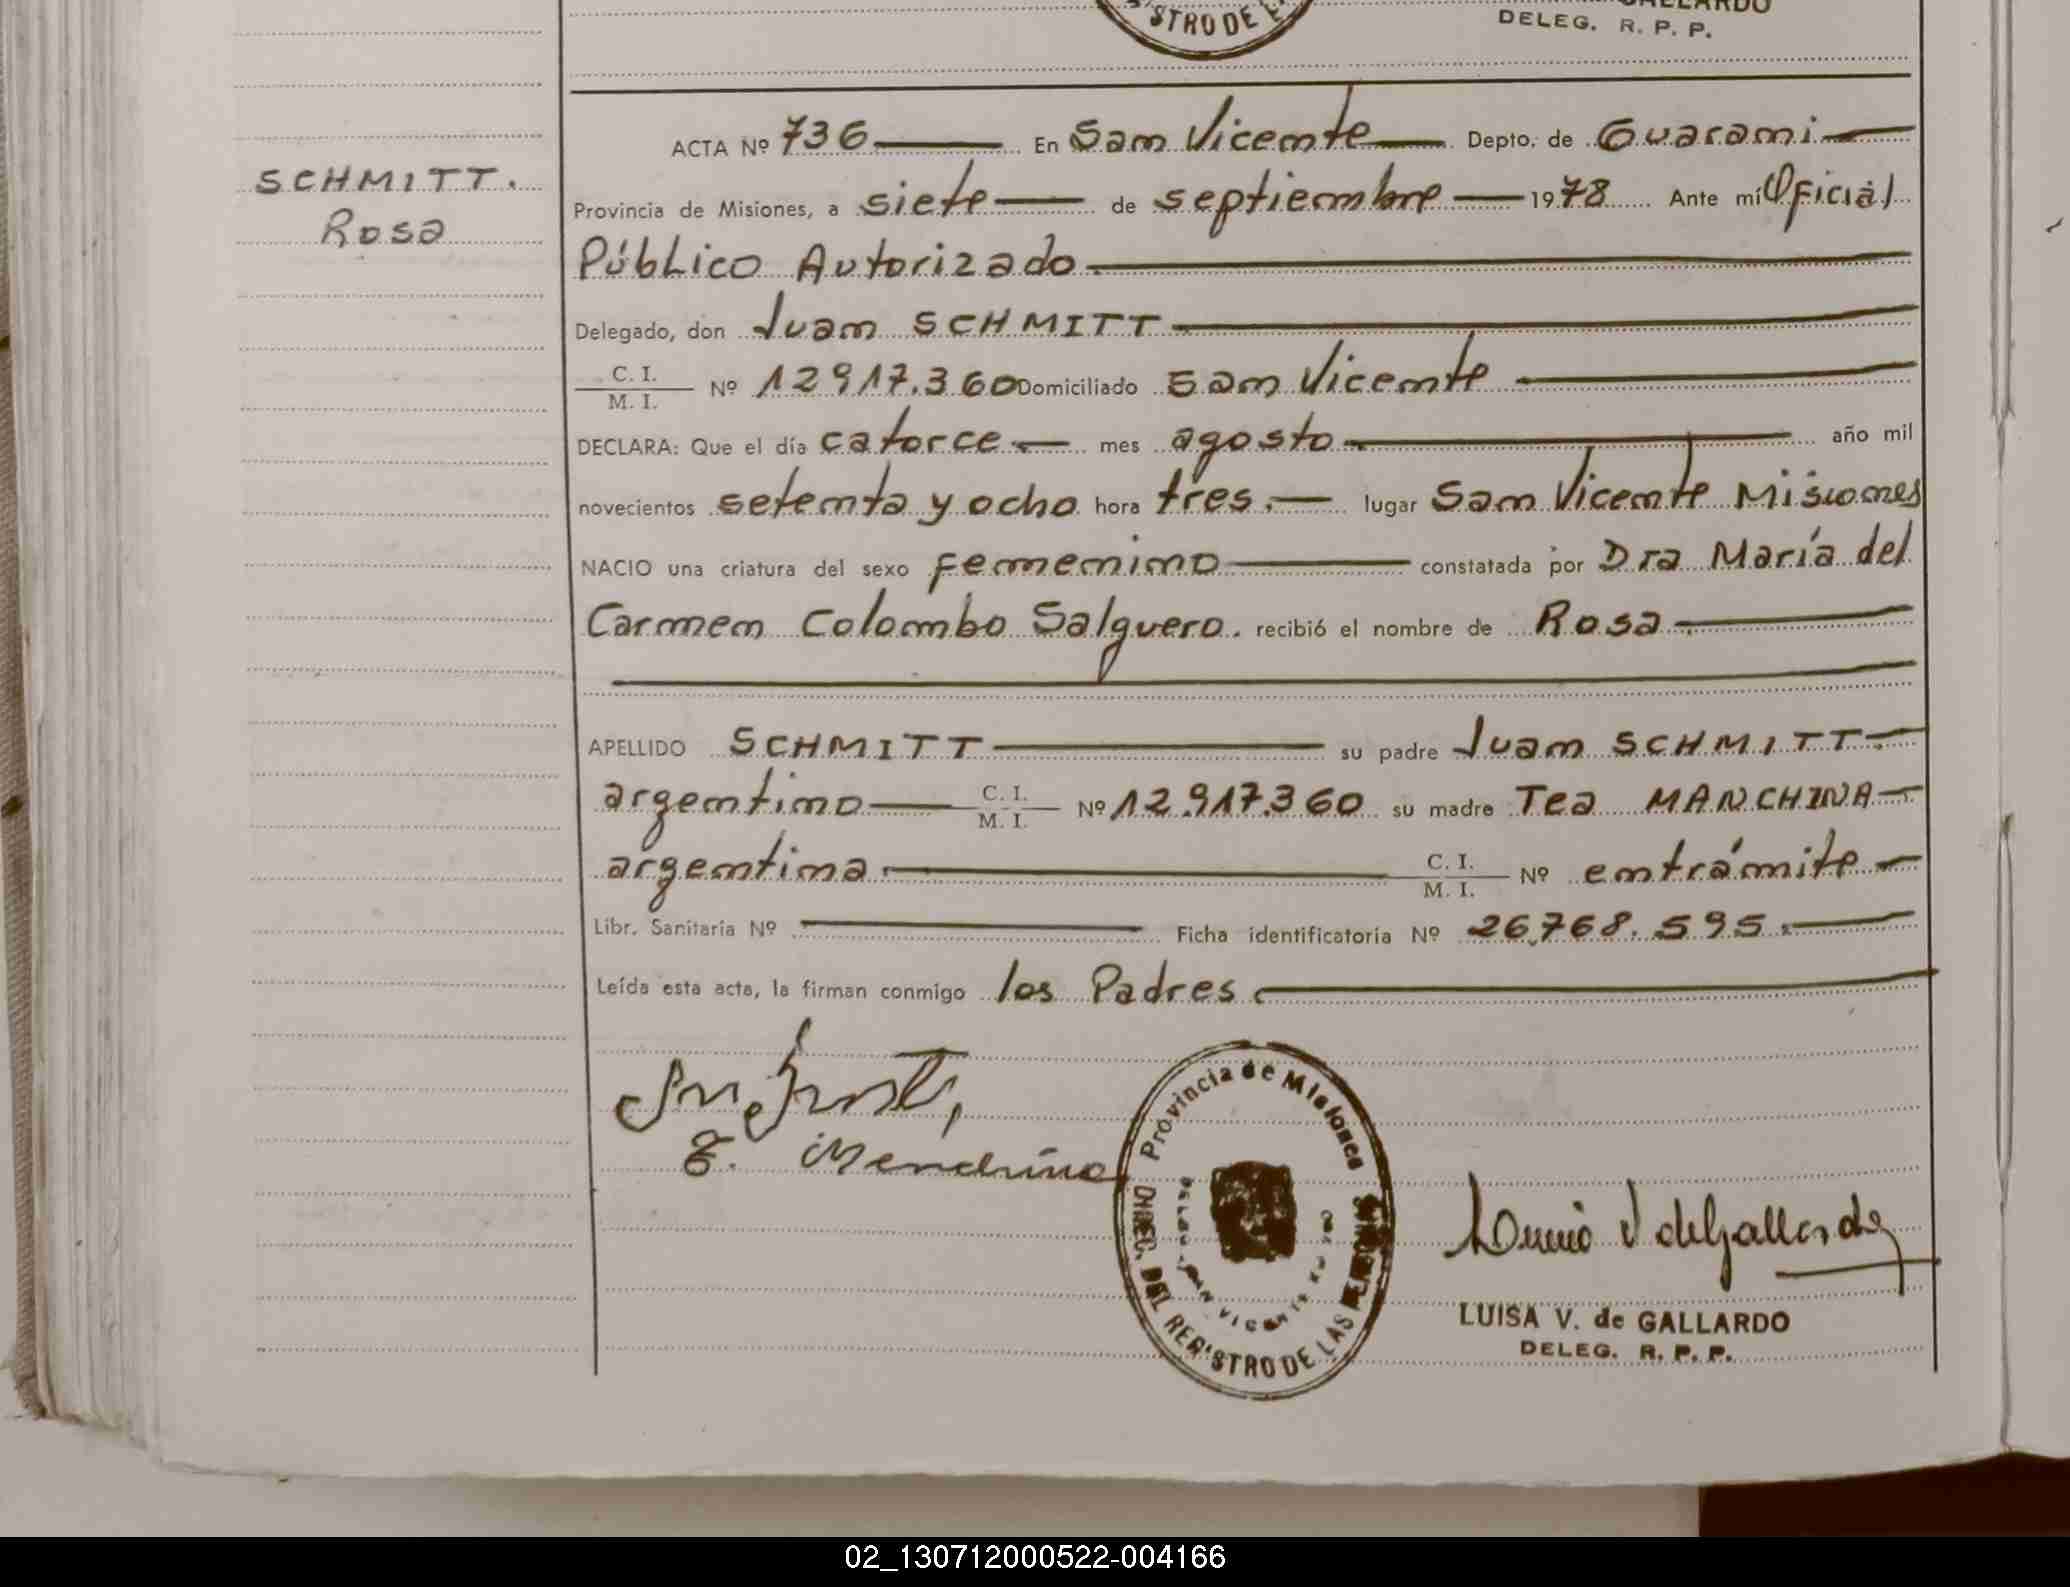 GALLARDO
STRO DE
DELEG. R. P. P.
SCHMITT.
Rosa
ACTA Nº 736 En San Vicente Depto. de Guarani
Provincia de Misiones, a siete de septiembre 1978 Ante mí Oficial
Público Autorizado
Delegado, don Juan SCHMITT
C. I.
M. I. Nº 12917.360 Domiciliado San Vicente
DECLARA: Que el día catorce mes agosto año mil
novecientos setenta y ocho hora tres. lugar San Vicente Misiones
NACIO una criatura del sexo femenino constatada por Dra María del
Carmen Colombo Salguero. recibió el nombre de Rosa
APELLIDO SCHMITT su padre Juan SCHMITT.
argentino C. I. M. I. Nº 12.917.360 su madre Tea MANCHINA
argentina C. I. M. I. Nº entrámite
Libr. Sanitaria Nº Ficha identificatoria Nº 26.768.595.
Leída esta acta, la firman conmigo los Padres
Provincia de Misiones
DIREC. DEL REGISTRO DE LAS PERSONAS
SAN VICENTE
LUISA V. de GALLARDO
DELEG. R. P. P.
02_130712000522-004166